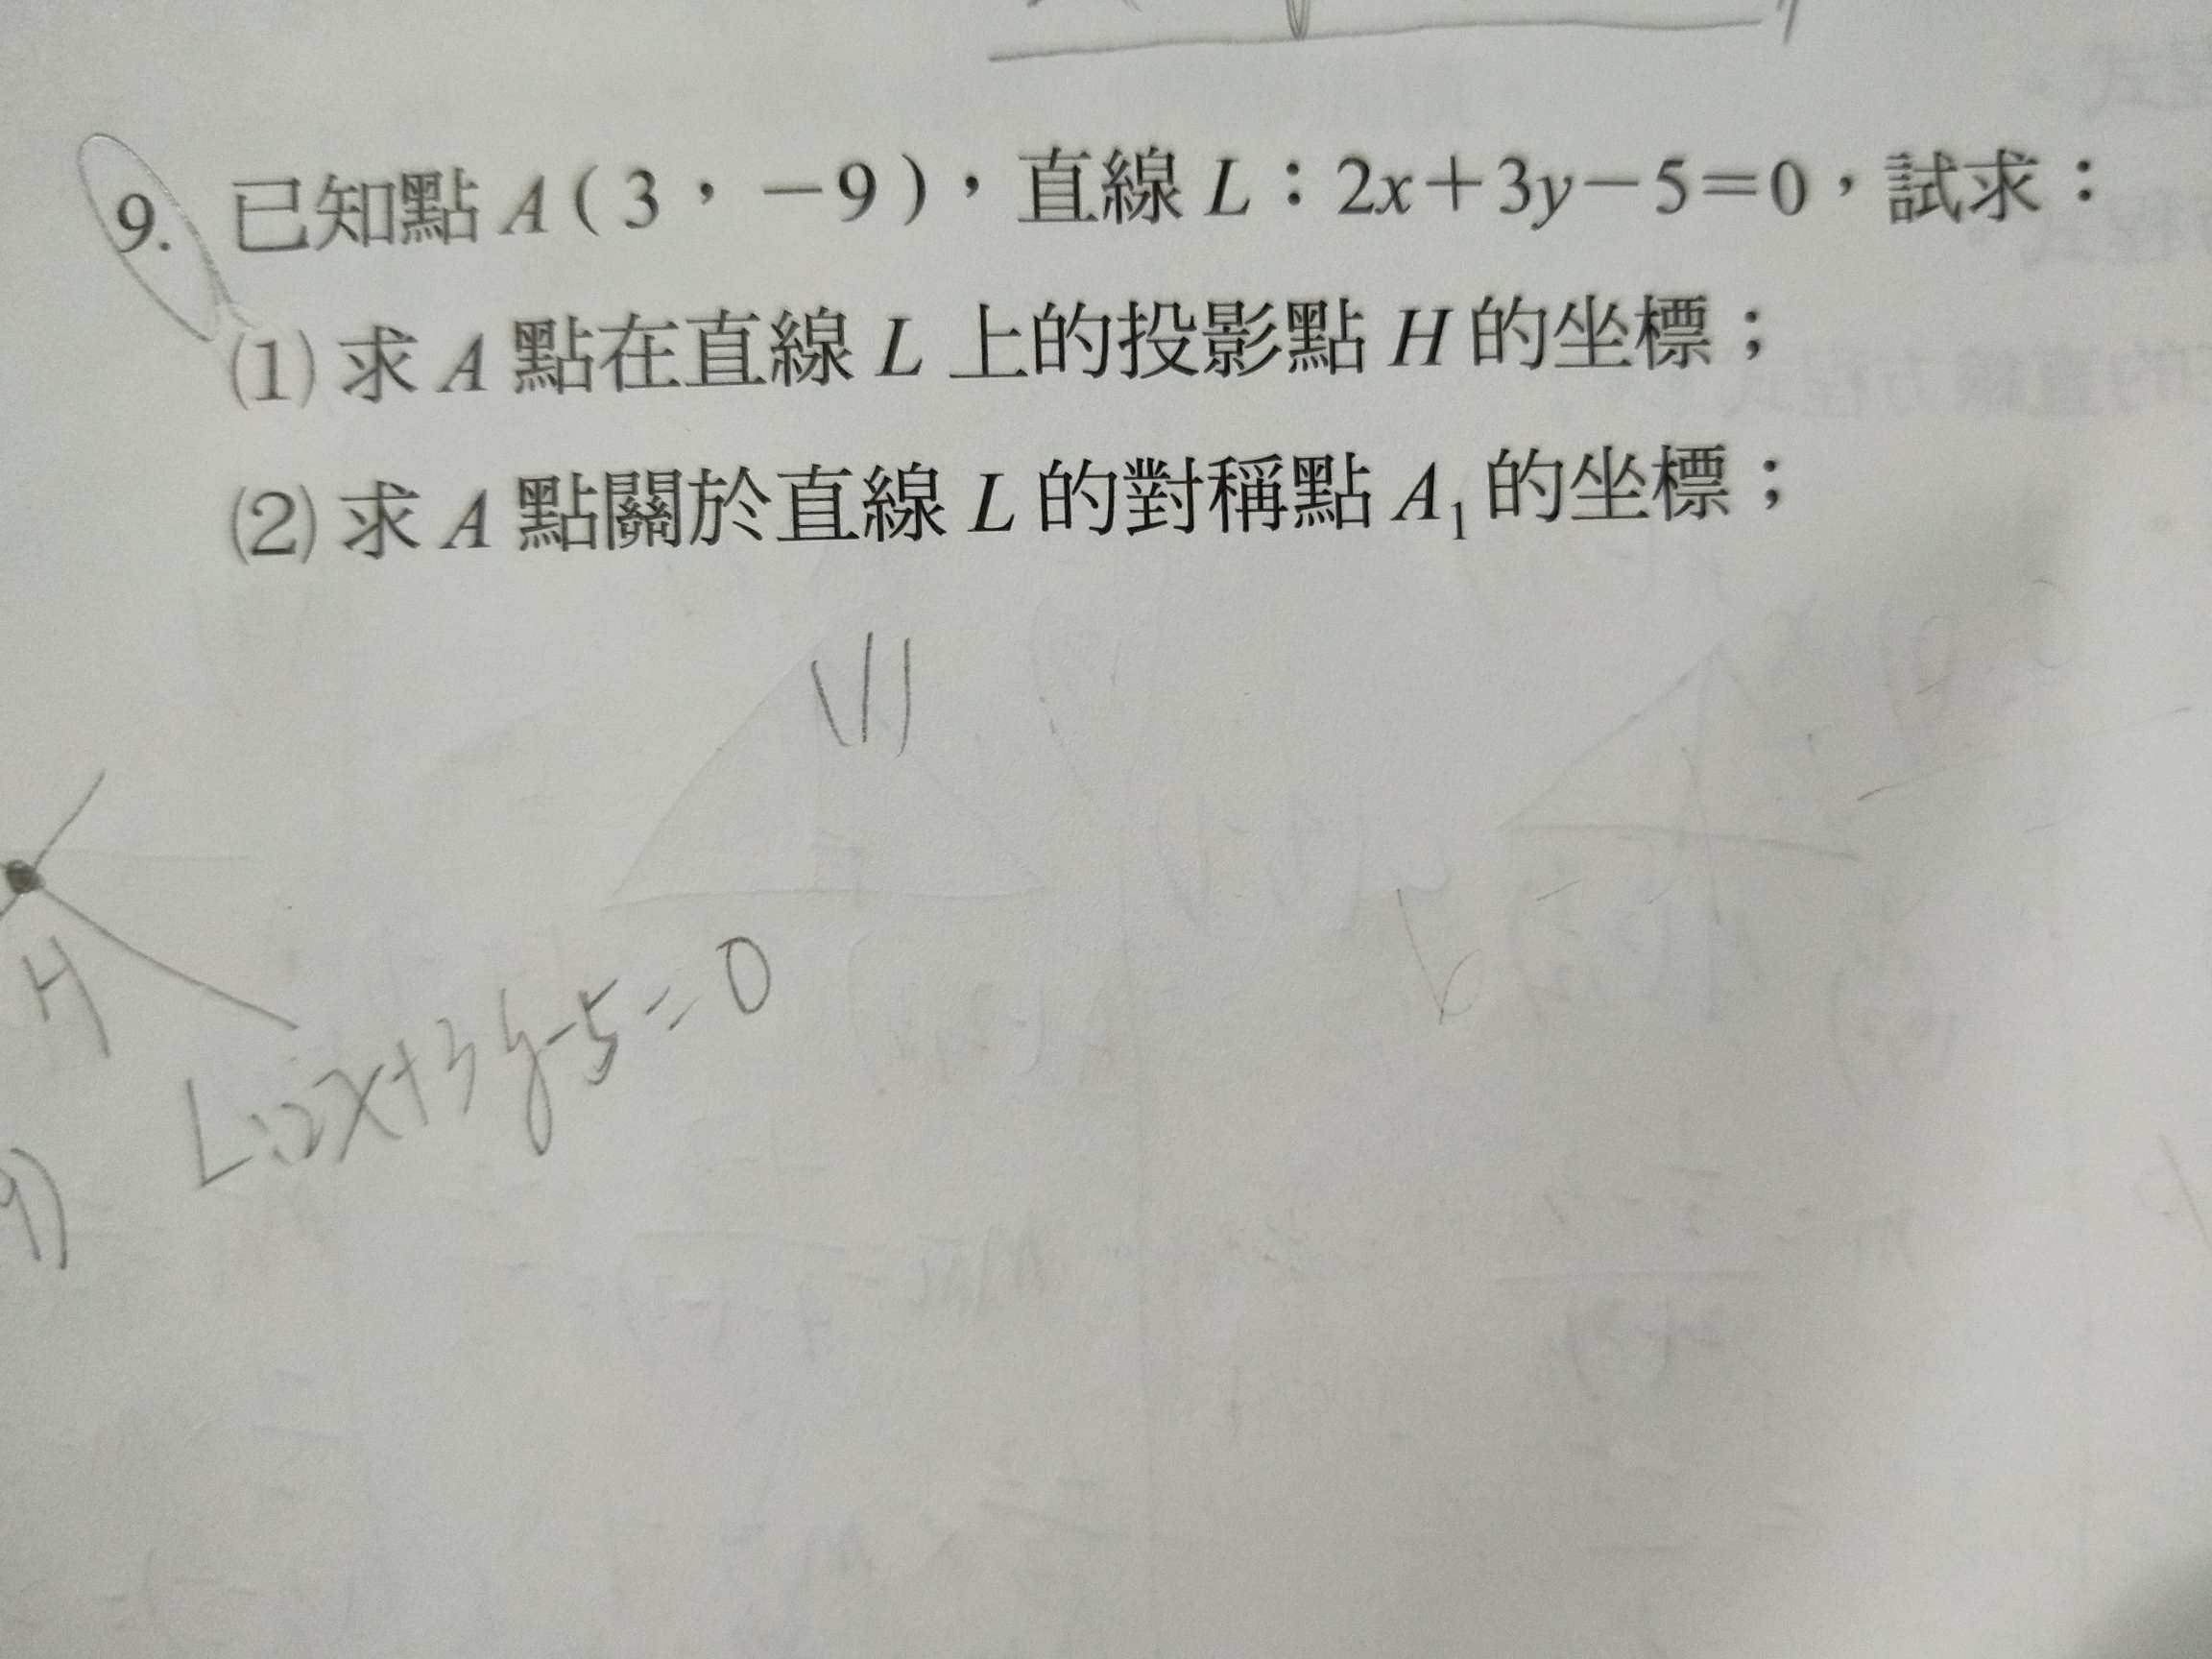 9. 已知點 A(3，-9)，直線 L：2x+3y-5=0，試求：
(1) 求 A 點在直線 L 上的投影點 H 的坐標；
(2) 求 A 點關於直線 L 的對稱點 A₁ 的坐標；
(1)
H
L:2x+3y-5=0
9)